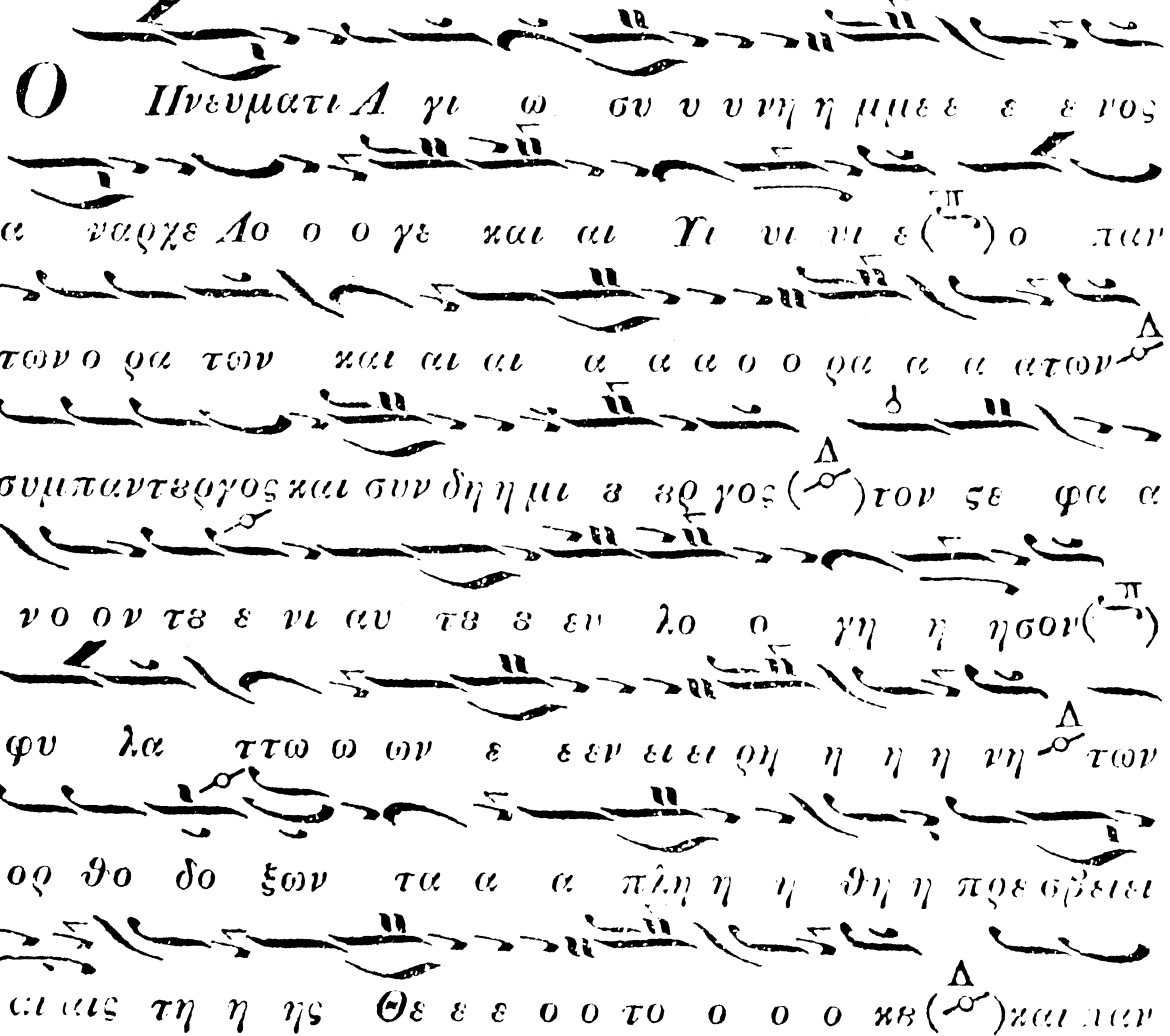 Ο Πνευματι Α γι ω συ υ υ νη η μμε ε ε ε νος
α ναρχε Λο ο ο γε και αι Υι υι υι ε (π) ο παν
των ο ρα των και αι αι α α α ο ο ρα α α ατων Δ
συμπαντȣργος και συν δη η μι ȣ ȣρ γος (Δ) τον ϛε φα α
νο ο ον τȣ ε νι αυ τȣ ȣ εν λο ο γη η ησον (π)
φυ λα ττω ω ων ε ε εν ει ει ρη η η η νη Δ των
ορ θο δο ξων τα α α πλη η η θη η πρε σβει ει
αι αις τη η ης Θε ε ε ο ο το ο ο ο κȣ (Δ) και παν